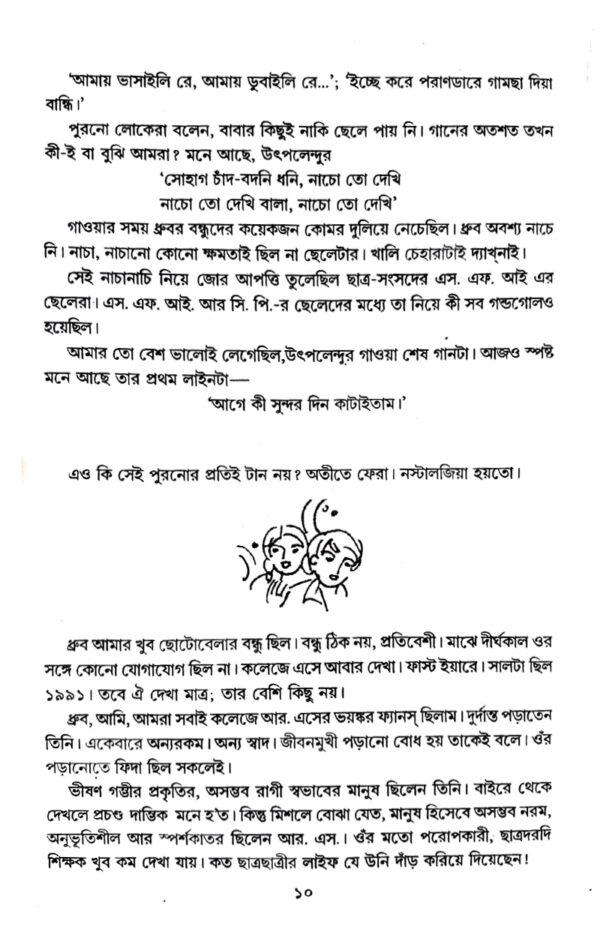 ‘আমায় ভাসাইলি রে, আমায় ডুবাইলি রে...’; ‘ইচ্ছে করে পরাণডারে গামছা দিয়া
বান্ধি।’
পুরনো লোকেরা বলেন, বাবার কিছুই নাকি ছেলে পায় নি। গানের অতশত তখন
কী-ই বা বুঝি আমরা? মনে আছে, উৎপলেন্দুর
‘সোহাগ চাঁদ-বদনি ধনি, নাচো তো দেখি
নাচো তো দেখি বালা, নাচো তো দেখি’
গাওয়ার সময় ধ্রুবর বন্ধুদের কয়েকজন কোমর দুলিয়ে নেচেছিল। ধ্রুব অবশ্য নাচে
নি। নাচা, নাচানো কোনো ক্ষমতাই ছিল না ছেলেটার। খালি চেহারাটাই দ্যাখ্‌নাই।
সেই নাচানাচি নিয়ে জোর আপত্তি তুলেছিল ছাত্র-সংসদের এস. এফ. আই এর
ছেলেরা। এস. এফ. আই. আর সি. পি.-র ছেলেদের মধ্যে তা নিয়ে কী সব গন্ডগোলও
হয়েছিল।
আমার তো বেশ ভালোই লেগেছিল,উৎপলেন্দুর গাওয়া শেষ গানটা। আজও স্পষ্ট
মনে আছে তার প্রথম লাইনটা—
‘আগে কী সুন্দর দিন কাটাইতাম।’
এও কি সেই পুরনোর প্রতিই টান নয়? অতীতে ফেরা। নস্টালজিয়া হয়তো।
ধ্রুব আমার খুব ছোটোবেলার বন্ধু ছিল। বন্ধু ঠিক নয়, প্রতিবেশী। মাঝে দীর্ঘকাল ওর
সঙ্গে কোনো যোগাযোগ ছিল না। কলেজে এসে আবার দেখা। ফার্স্ট ইয়ারে। সালটা ছিল
১৯৯১। তবে ঐ দেখা মাত্র; তার বেশি কিছু নয়।
ধ্রুব, আমি, আমরা সবাই কলেজে আর. এসের ভয়ঙ্কর ফ্যানস্ ছিলাম। দুর্দান্ত পড়াতেন
তিনি। একেবারে অন্যরকম। অন্য স্বাদ। জীবনমুখী পড়ানো বোধ হয় তাকেই বলে। ওঁর
পড়ানোতে ফিদা ছিল সকলেই।
ভীষণ গম্ভীর প্রকৃতির, অসম্ভব রাগী স্বভাবের মানুষ ছিলেন তিনি। বাইরে থেকে
দেখলে প্রচণ্ড দাম্ভিক মনে হ’ত। কিন্তু মিশলে বোঝা যেত, মানুষ হিসেবে অসম্ভব নরম,
অনুভূতিশীল আর স্পর্শকাতর ছিলেন আর. এস.। ওঁর মতো পরোপকারী, ছাত্রদরদি
শিক্ষক খুব কম দেখা যায়। কত ছাত্রছাত্রীর লাইফ যে উনি দাঁড় করিয়ে দিয়েছেন!
১০